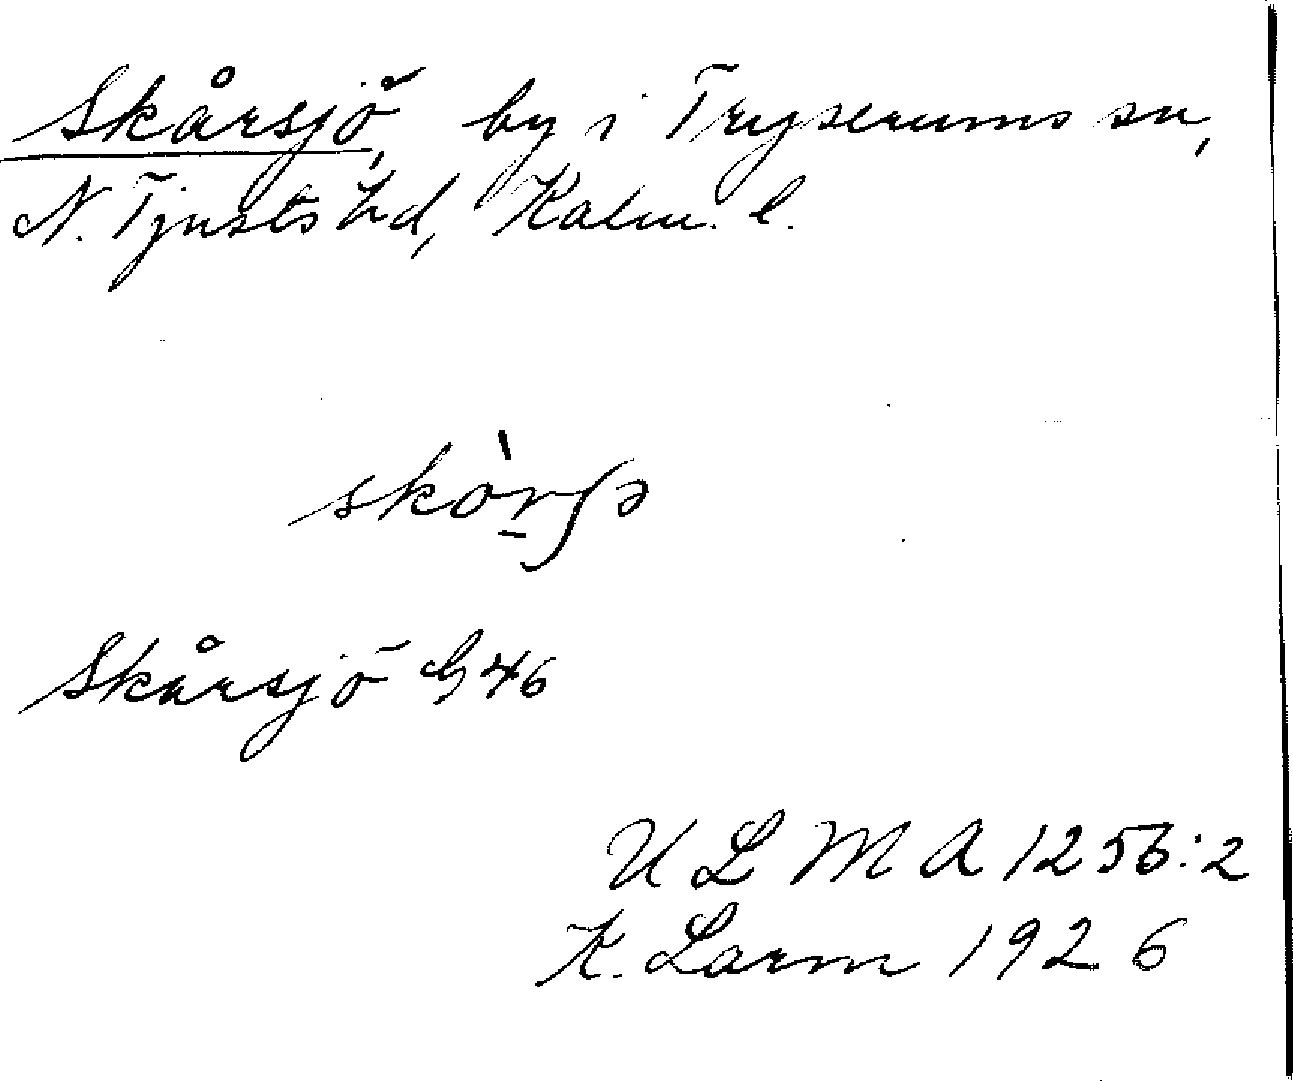 Skårsjö, by i Tryserums sn,
N. Tjusts hd, Kalm. l.
skòrʃə
Skårsjö G 46
U L M A 1256:2
K. Larm 1926